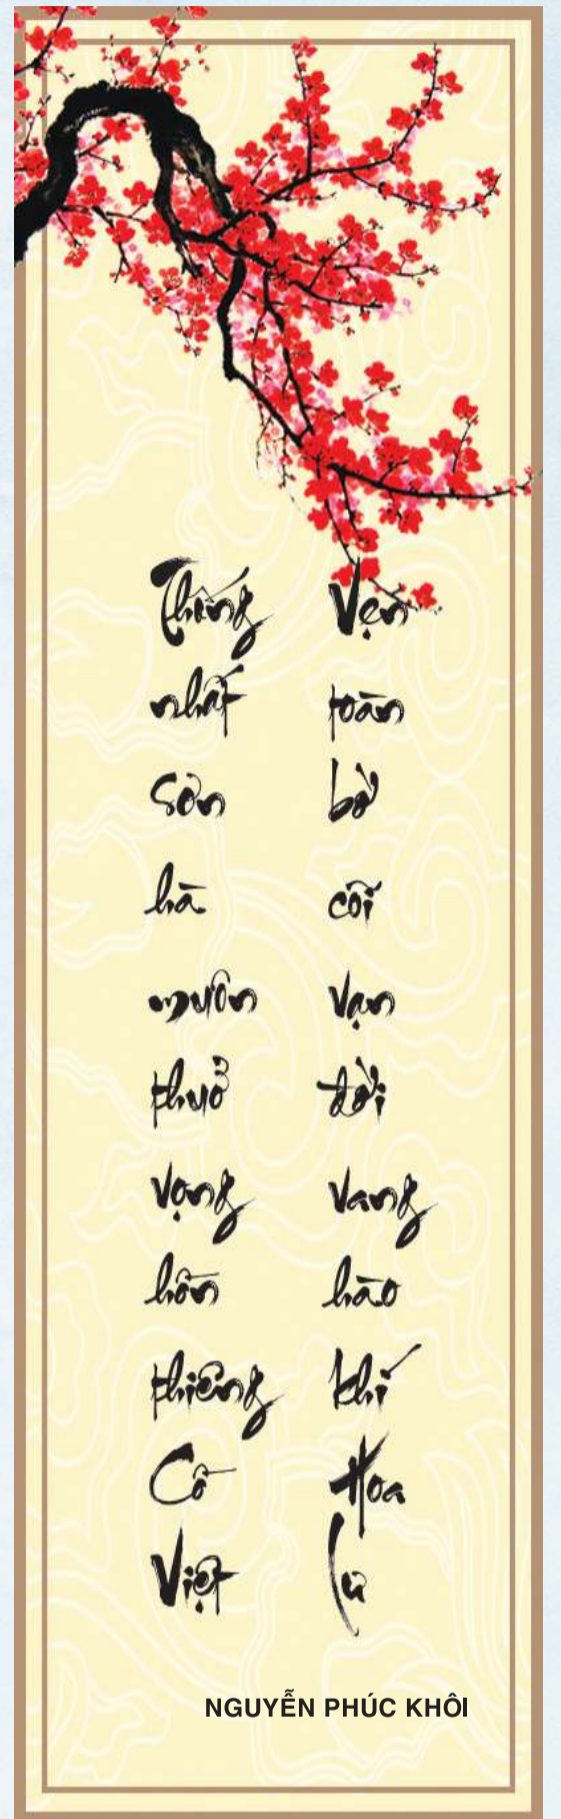 Thống nhất Sơn hà muôn thuở vọng hồn thiêng Cồ Việt
Vẹn toàn bờ cõi vạn đời vang hào khí Hoa Lư
NGUYỄN PHÚC KHÔI